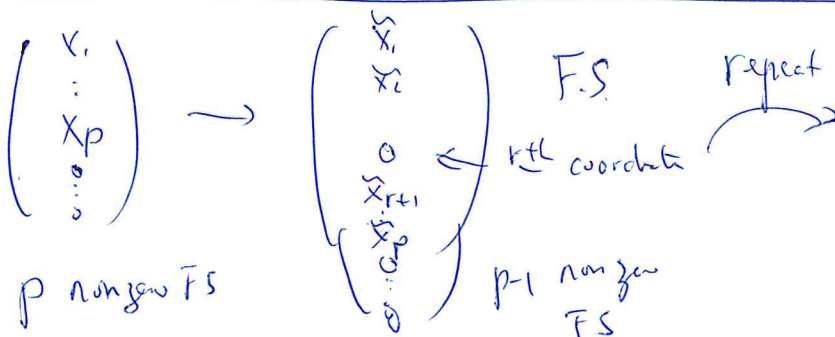 ( x₁ ⋮ x_p 0 ⋮ 0 ) → ( x̃₁ x̃₂ 0 x̃_{r+1} ⋮ x̃_p 0 ⋮ 0 ) F.S. repeat
← rth coordinate
p nonzero FS
p-1 nonzero
FS